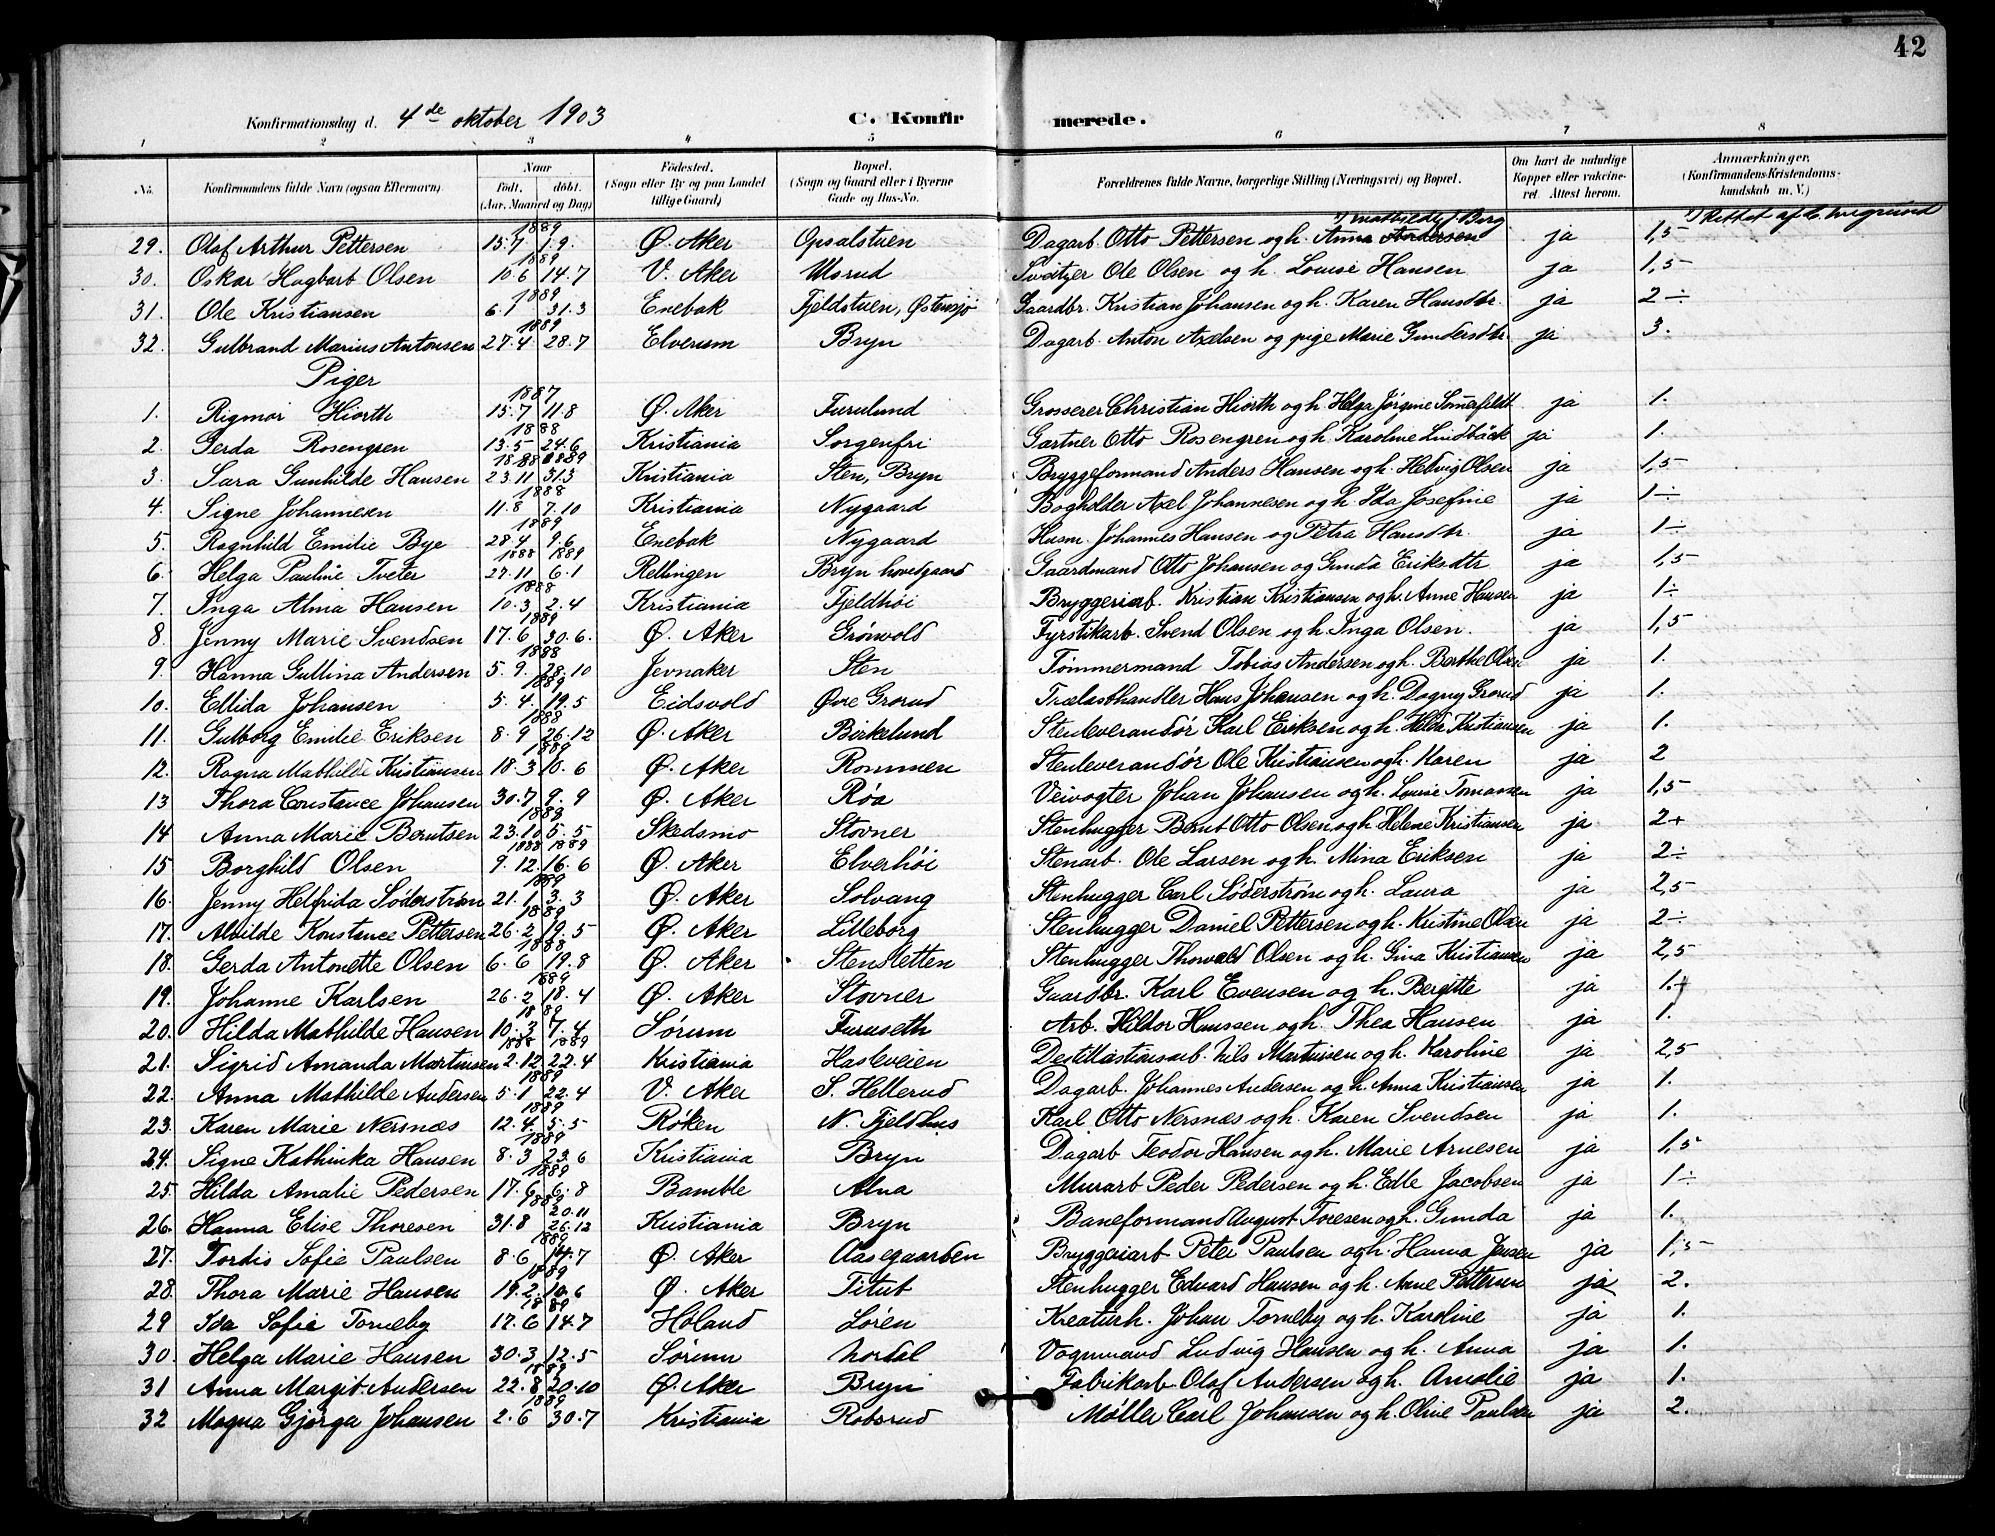 42
Konfirmationsdag d. 4de oktober 1903 C. Konfirmerede.
1 2 3 4 5 6 7 8
No. Konfirmandens fulde Navn (ogsaa Efternavn). Naar født, døbt. (Aar, Maaned og Dag.) Fødested. (Sogn eller By og paa Landet tillige Gaard) Bopæl. (Sogn og Gaard eller i Byerne Gade og Hus-No. Forældrenes fulde Navne, borgerlige Stilling (Næringsvei) og Bopæl. Om havt de naturlige Kopper eller vakcineret. Attest herom. Anmærkninger. (Konfirmandens Kristendomskundskab m. V.)
29. Olaf Arthur Pettersen 1889 15.7 1.9. Ø. Aker Opsalstuen Dagarb. Otto Pettersen og h. Anna Andersen ja 1,5
30. Oskar Hagbart Olsen 1889 10.6 14.7 V. Aker Ulsrud Sveitzer Ole Olsen og h. Louise Hansen ja 1,5
31. Ole Kristiansen 1889 6.1 31.3 Enebak Fjeldstuen, Østensjø Gaardbr. Kristian Johansen og h. Karen Hansdtr. ja 2÷
32. Gulbrand Marius Antonsen 1889 27.4 28.7 Elverum Bryn Dagarb. Anton Axelsen og pige Marie Gundersdtr. ja 3.
Piger
1. Rigmor Hiorth 1887 15.7 11.8 Ø. Aker Furulund Grosserer Christian Hiorth og h. Helga Jørgine Somerfeldt ja 1.
2. Gerda Rosengren 1888 13.5 24.6 Kristiania Sorgenfri Gartner Otto Rosengren og h. Karoline Lindbäck ja 1.
3. Sara Gunhilde Hansen 1888 1889 23.11 31.3 Kristiania Sten, Bryn Bryggeformand Anders Hansen og h. Hedvig Olsen ja 1,5
4. Signe Johannesen 1888 11.8 7.10 Kristiania Nygaard Bogholder Axel Johannesen og h. Ida Josefine ja 1÷
5. Ragnhild Emilie Bye 1889 28.4 9.6 Enebak Nygaard Husm. Johannes Hansen og Petra Hansdtr. ja 1÷
6. Helga Pauline Tveter 1888 1889 27.11 6.1 Rellingen Bryn hovedgaard Gaardmand Otto Johansen og Gunda Eriksdtr ja 1,5
7. Inga Alma Hansen 1888 10.3 2.4 Kristiania Fjeldhøi Bryggeriarb. Kristian Kristiansen og h. Anne Hansen ja 1÷
8. Jenny Marie Svendsen 1889 17.6 30.6. Ø. Aker Grønvold Fyrstikarb. Svend Olsen og h. Inga Olsen. ja 1,5
9. Hanna Gullina Andersen 1888 5.9. 28.10 Jevnaker Sten Tømmermand Tobias Andersen og h. Berthe Olsen ja 1.
10. Ellida Johansen 1889 5.4. 19.5 Eidsvold Øvre Grorud Trælasthandler Hans Johansen og h. Dagny Grorud ja 1.
11. Gulborg Emilie Eriksen 1888 8.9 26.12 Ø. Aker Birkelund Stenleverandør Karl Eriksen og h. Hilda Kristiansen ja 1.
12. Ragna Mathilde Kristiansen 1889 18.3 10.6 Ø. Aker Rommen Stenleverandør Ole Kristiansen og h. Karen ja 2
13 Thora Constance Johansen 30.7 9.9 Ø. Aker Røa Veivogter Johan Johansen og h. Louise Tomassen ja 1,5
14. Anna Marie Berntsen 1888 23.10 5.5 Skedsmo Stovner Stenhugger Bernt Otto Olsen og h. Helene Kristiansen ja 2+
15 Borghild Olsen 1888 1889 9.12. 16.6 Ø. Aker Elverhøi Stenarb. Ole Larsen og h. Mina Eriksen ja 2÷
16. Jenny Helfrida Søderstrøm 1889 21.1 3.3 Ø. Aker Solvang Stenhugger Carl Søderstrøm og h. Laura ja 2,5
17. Alvilde Konstance Pettersen 1889 26.2 19.5 Ø. Aker Lilleborg Stenhugger Daniel Pettersen og h. Kristine Olsen ja 2÷
18. Gerda Antonette Olsen 1888 6.6 19.8 Ø. Aker Stensletten Stenhugger Thorvald Olsen og h. Gina Kristiansen ja 2,5
19. Johanne Karlsen 1889 26.2 18.4 Ø. Aker Stovner Gaardbr. Karl Evensen og h. Bergitte ja 1.+
20. Hilda Mathilde Hansen 1889 10.3 7.4 Sørum Furuseth Arb. Hildor Hanssen og h. Thea Hansen ja 1.
21. Sigrid Amanda Martinsen 1888 1889 2.12 22.4 Kristiania Hasleveien Destillastionsarb. Nils Martinsen og h. Karoline ja 2,5
22. Anna Mathilde Andersen 1889 5.1 22.4 V. Aker S. Hellerud Dagarb. Johannes Andersen og h. Anna Kristiansen ja 1.
23. Karen Marie Nersnæs 1889 12.4. 5.5 Røken N. Fjeldhus Karl Otto Nersnæs og h. Karen Svendsen ja 1.
24. Signe Kathinka Hansen 1889 8.3 23.6 Kristiania Bryn Dagarb Teodor Hansen og h. Marie Arnesen ja 1,5
25. Hilda Amalie Pedersen 1889 17.6 6.8 Bamble Alna Murarb Peder Pedersen og h. Edle Jacobsen ja 1÷
26. Hanna Elise Thoresen 1889 31.8 20.11 26.12 Kristiania Bryn Baneformand August Toresen og h. Gunda ja 1.
27. Tordis Sofie Paulsen 1889 8.6 14.7 Ø. Aker Aasegaarden Bryggeriarb Peter Paulsen og h. Hanna Jensen ja 1,5
28. Thora Marie Hansen 1889 19.2. 10.6 Ø. Aker Titut Stenhugger Edvard Hansen og h. Anne Pettersen ja 2.
29 Ida Sofie Torneby 1889 17.6 14.7 Høland Løren Kreaturh. Johan Torneby og h. Karoline ja 1.
30. Helga Marie Hansen 30.3 12.5 Sørum Nordal Vognmand Ludvig Hansen og h. Anna ja 1.
31 Anna Margit Andersen 1889 22.8 20.10 Ø. Aker Bryn Fabrikarb. Olaf Andersen og h. Amalie ja 1.
32 Magna Gjørga Johansen 1889 2.6 30.7 Kristiania Robsrud Møller Carl Johansen og h. Oline Paulsen ja 2.